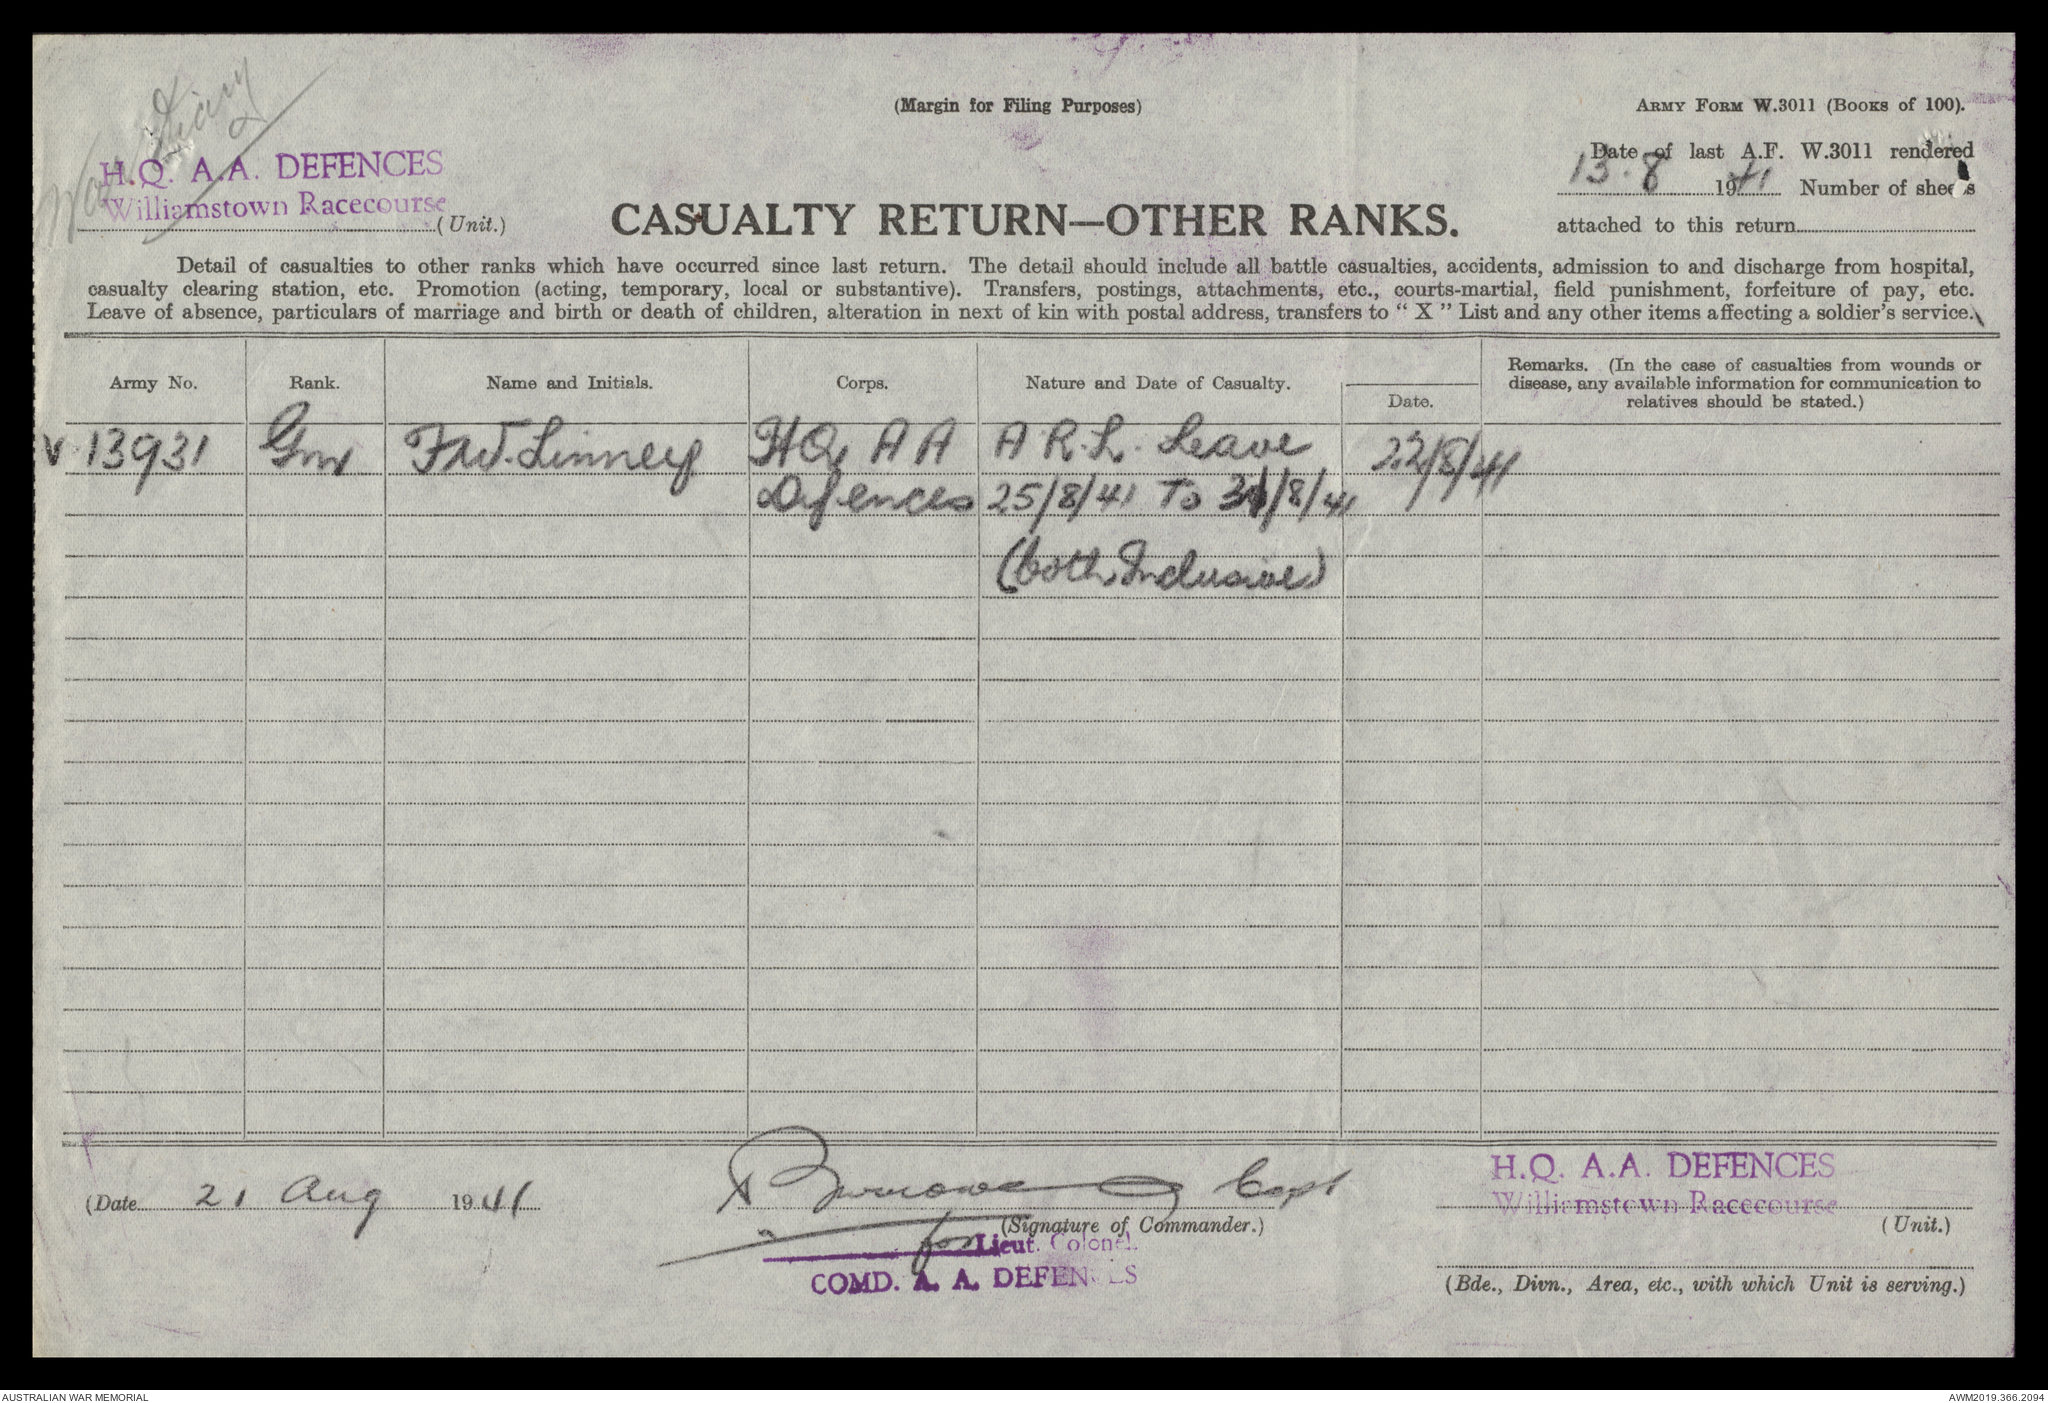 War Diary
(Margin for Filing Purposes)
ARMY FORM W.3011 (BOOKS of 100).
H.Q. A.A. DEFENCES
Williamstown Racecourse
(Unit.)
CASUALTY RETURN—OTHER RANKS.
Date of last A.F. W.3011 rendered
13.8 1941 Number of sheets
attached to this return
Detail of casualties to other ranks which have occurred since last return. The detail should include all battle casualties, accidents, admission to and discharge from hospital,
casualty clearing station, etc. Promotion (acting, temporary, local or substantive). Transfers, postings, attachments, etc., courts-martial, field punishment, forfeiture of pay, etc.
Leave of absence, particulars of marriage and birth or death of children, alteration in next of kin with postal address, transfers to "X" List and any other items affecting a soldier's service.
Army No. Rank. Name and Initials. Corps. Nature and Date of Casualty. Date. Remarks. (In the case of casualties from wounds or
disease, any available information for communication to
relatives should be stated.)
V 13931 Gnr F.W. Linney HQ AA A.R.L. Leave 22/8/41
Defences 25/8/41 To 31/8/41
(both Inclusive)
(Date 21 Aug 1941
Burrows Capt
(Signature of Commander.)
for Lieut. Colonel.
COMD. A. A. DEFENCES
H.Q. A.A. DEFENCES
Williamstown Racecourse
(Unit.)
(Bde., Divn., Area, etc., with which Unit is serving.)
AUSTRALIAN WAR MEMORIAL
AWM2019.366.2094